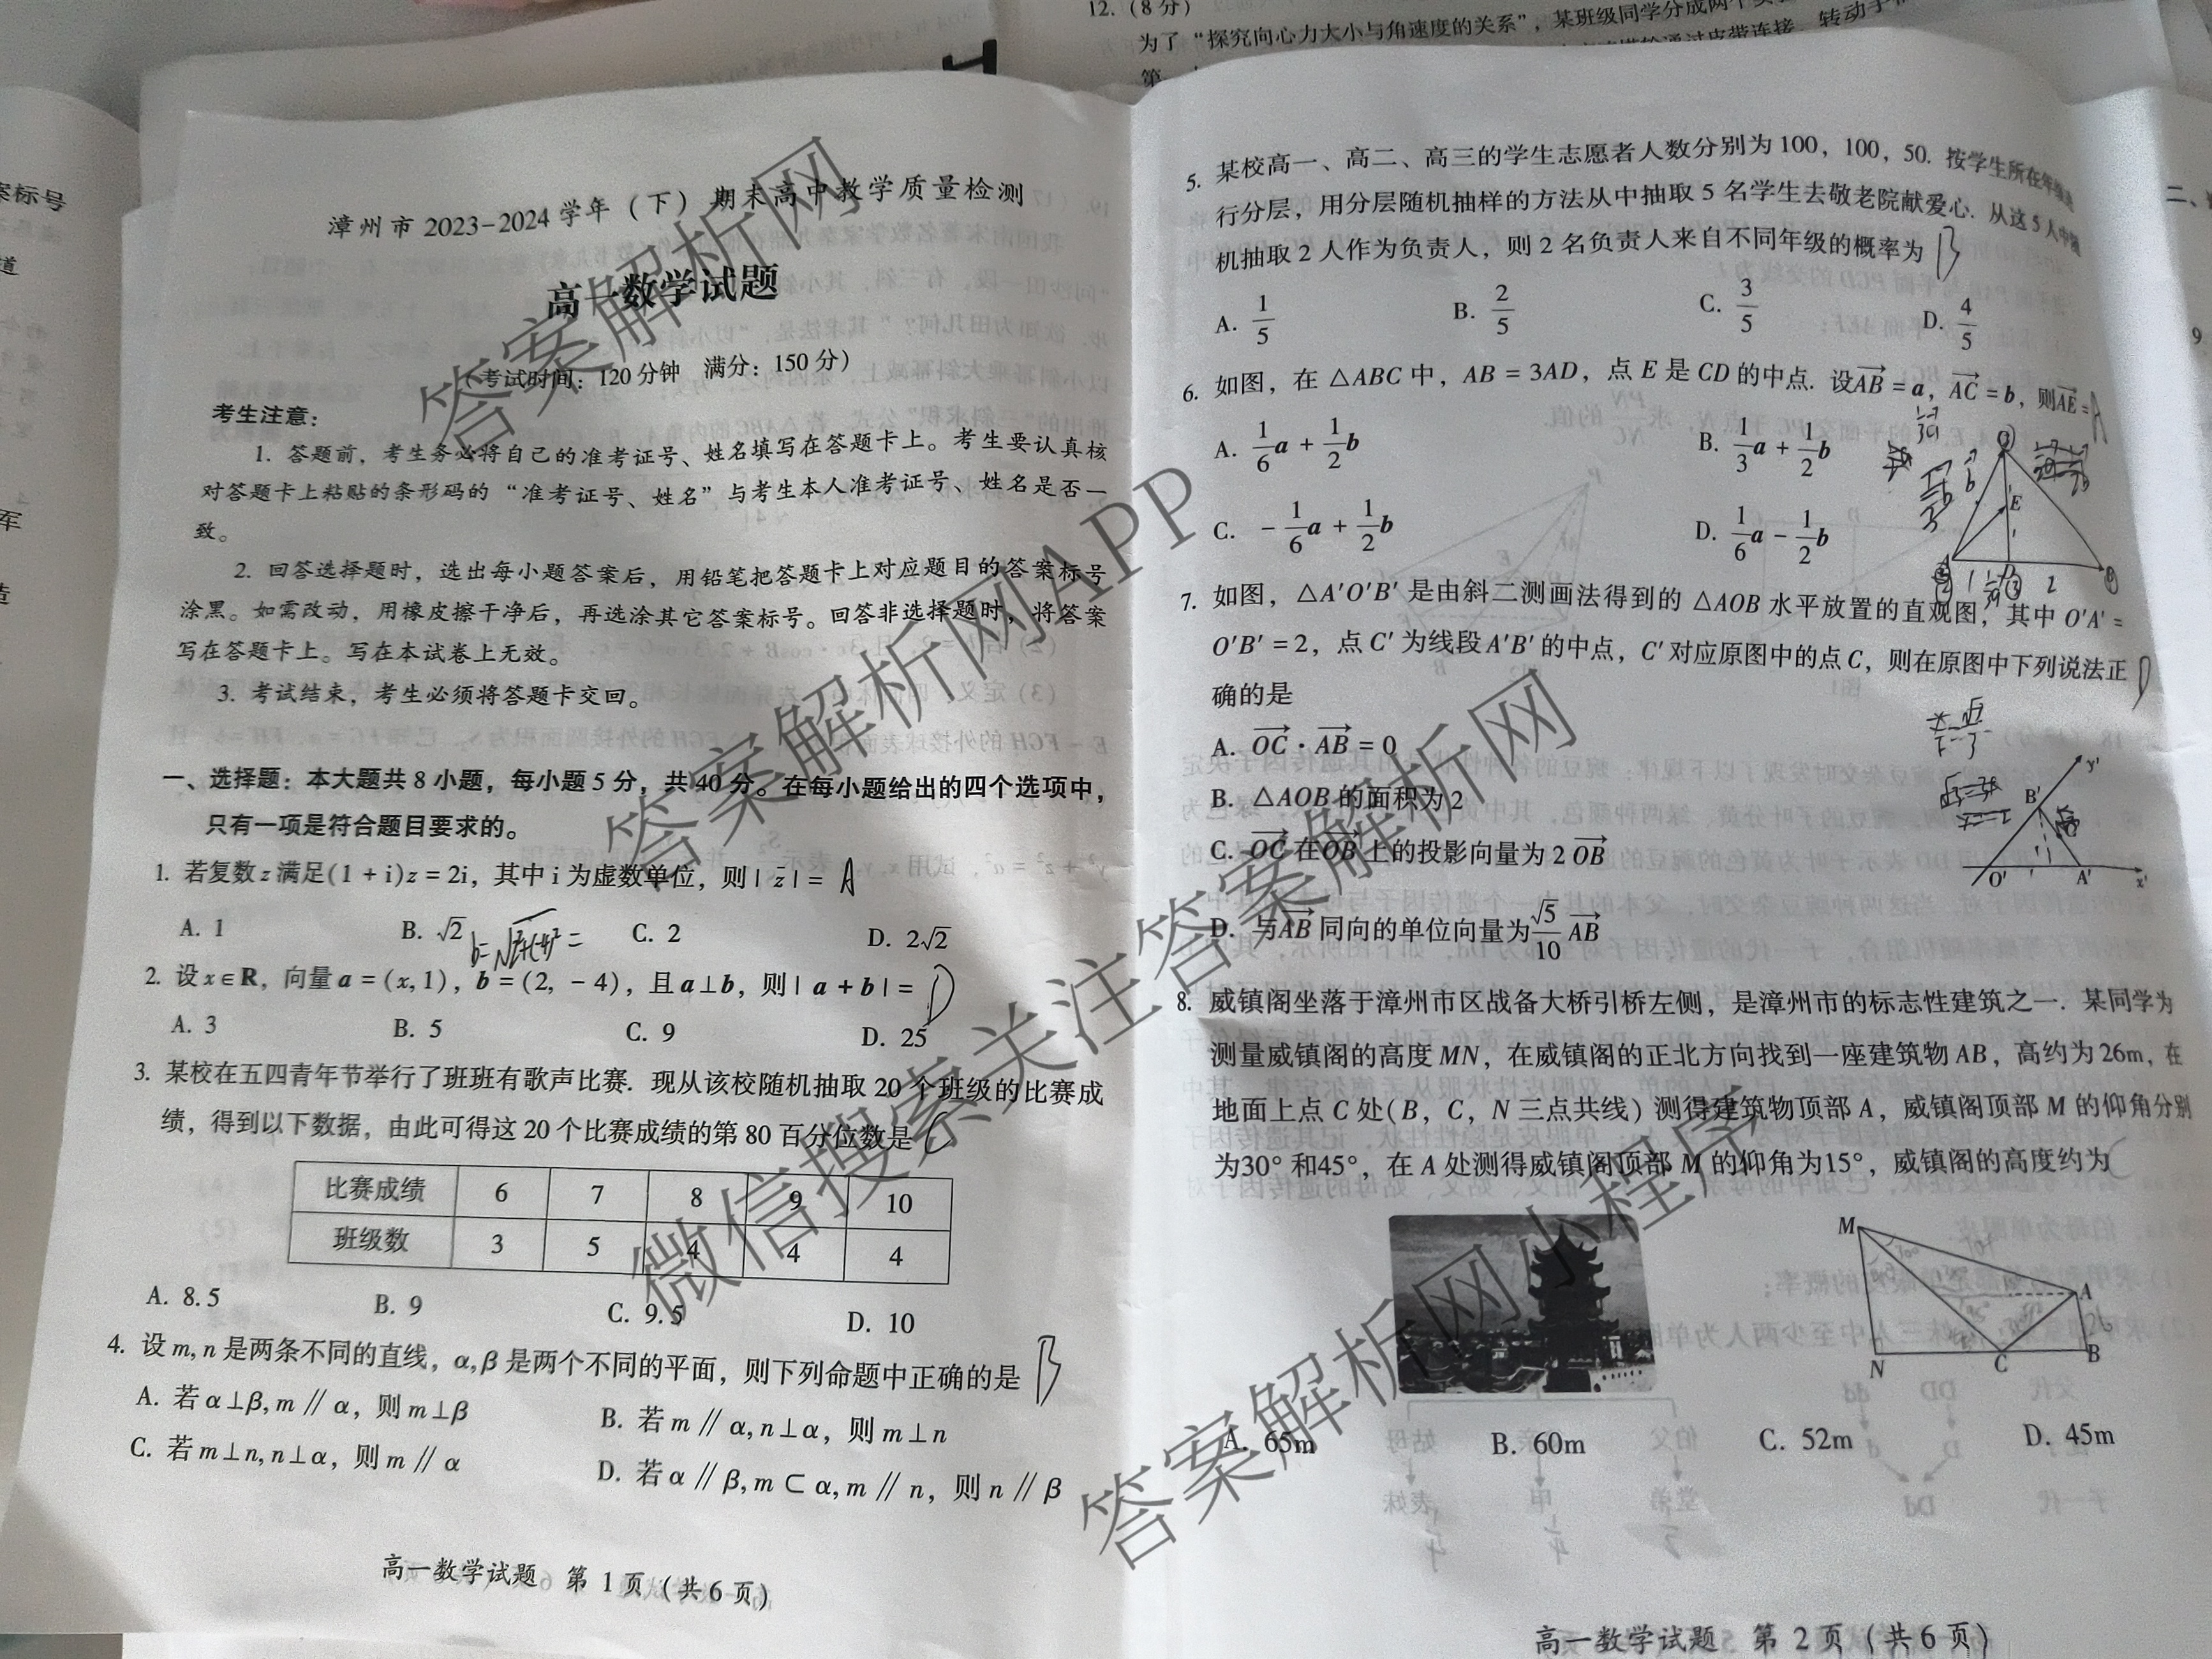 12. (8分)
为了“探究向心力大小与角速度的关系”，某班级同学分成两个
漳州市2023-2024学年（下）期末高中教学质量检测
高一数学试题
（考试时间：120分钟 满分：150分）
考生注意：
1. 答题前，考生务必将自己的准考证号、姓名填写在答题卡上。考生要认真核
对答题卡上粘贴的条形码的“准考证号、姓名”与考生本人准考证号、姓名是否一
致。
2. 回答选择题时，选出每小题答案后，用铅笔把答题卡上对应题目的答案标号
涂黑。如需改动，用橡皮擦干净后，再选涂其它答案标号。回答非选择题时，将答案
写在答题卡上。写在本试卷上无效。
3. 考试结束，考生必须将答题卡交回。
一、选择题：本大题共8小题，每小题5分，共40分。在每小题给出的四个选项中，
只有一项是符合题目要求的。
1. 若复数z满足(1+i)z=2i，其中i为虚数单位，则|z̄|= A
A. 1 B. √2 C. 2 D. 2√2
2. 设x∈R，向量a=(x,1)，b=(2,-4)，且a⊥b，则|a+b|= D
A. 3 B. 5 C. 9 D. 25
3. 某校在五四青年节举行了班班有歌声比赛. 现从该校随机抽取20个班级的比赛成
绩，得到以下数据，由此可得这20个比赛成绩的第80百分位数是 C
比赛成绩 6 7 8 9 10
班级数 3 5 4 4 4
A. 8.5 B. 9 C. 9.5 D. 10
4. 设m,n是两条不同的直线，α,β是两个不同的平面，则下列命题中正确的是 B
A. 若α⊥β,m∥α，则m⊥β B. 若m∥α,n⊥α，则m⊥n
C. 若m⊥n,n⊥α，则m∥α D. 若α∥β,m⊂α,m∥n，则n∥β
高一数学试题 第1页（共6页）
5. 某校高一、高二、高三的学生志愿者人数分别为100，100，50. 按学生所在年级进
行分层，用分层随机抽样的方法从中抽取5名学生去敬老院献爱心. 从这5人中随
机抽取2人作为负责人，则2名负责人来自不同年级的概率为 B
A. 1/5 B. 2/5 C. 3/5 D. 4/5
6. 如图，在△ABC中，AB=3AD，点E是CD的中点. 设AB→=a，AC→=b，则AE→= A
A. 1/6a+1/2b B. 1/3a+1/2b
C. -1/6a+1/2b D. 1/6a-1/2b
7. 如图，△A′O′B′是由斜二测画法得到的△AOB水平放置的直观图，其中O′A′=
O′B′=2，点C′为线段A′B′的中点，C′对应原图中的点C，则在原图中下列说法正
确的是 D
A. OC→·AB→=0
B. △AOB的面积为2
C. OC→在OB→上的投影向量为2OB→
D. 与AB→同向的单位向量为√5/10 AB→
y′
B′
O′ A′ x′
8. 威镇阁坐落于漳州市区战备大桥引桥左侧，是漳州市的标志性建筑之一. 某同学为
测量威镇阁的高度MN，在威镇阁的正北方向找到一座建筑物AB，高约为26m，在
地面上点C处(B，C，N三点共线)测得建筑物顶部A，威镇阁顶部M的仰角分别
为30°和45°，在A处测得威镇阁顶部M的仰角为15°，威镇阁的高度约为 C
M
A
N C B
A. 65m B. 60m C. 52m D. 45m
高一数学试题 第2页（共6页）
答案解析网
微信搜索关注答案解析网
答案解析网APP
答案解析网小程序